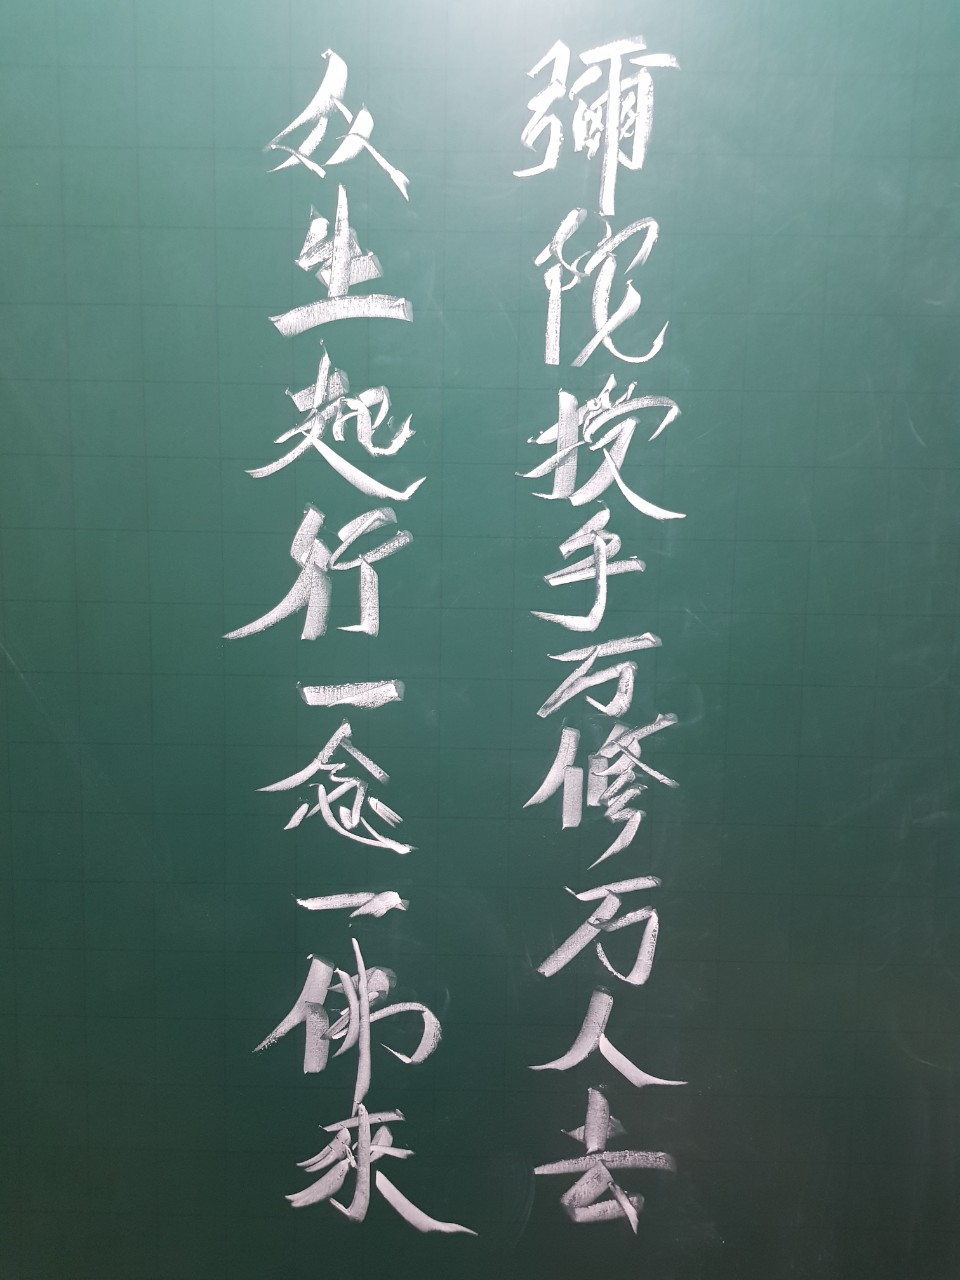 彌陀授手万修万人去
众生起行一念一佛來